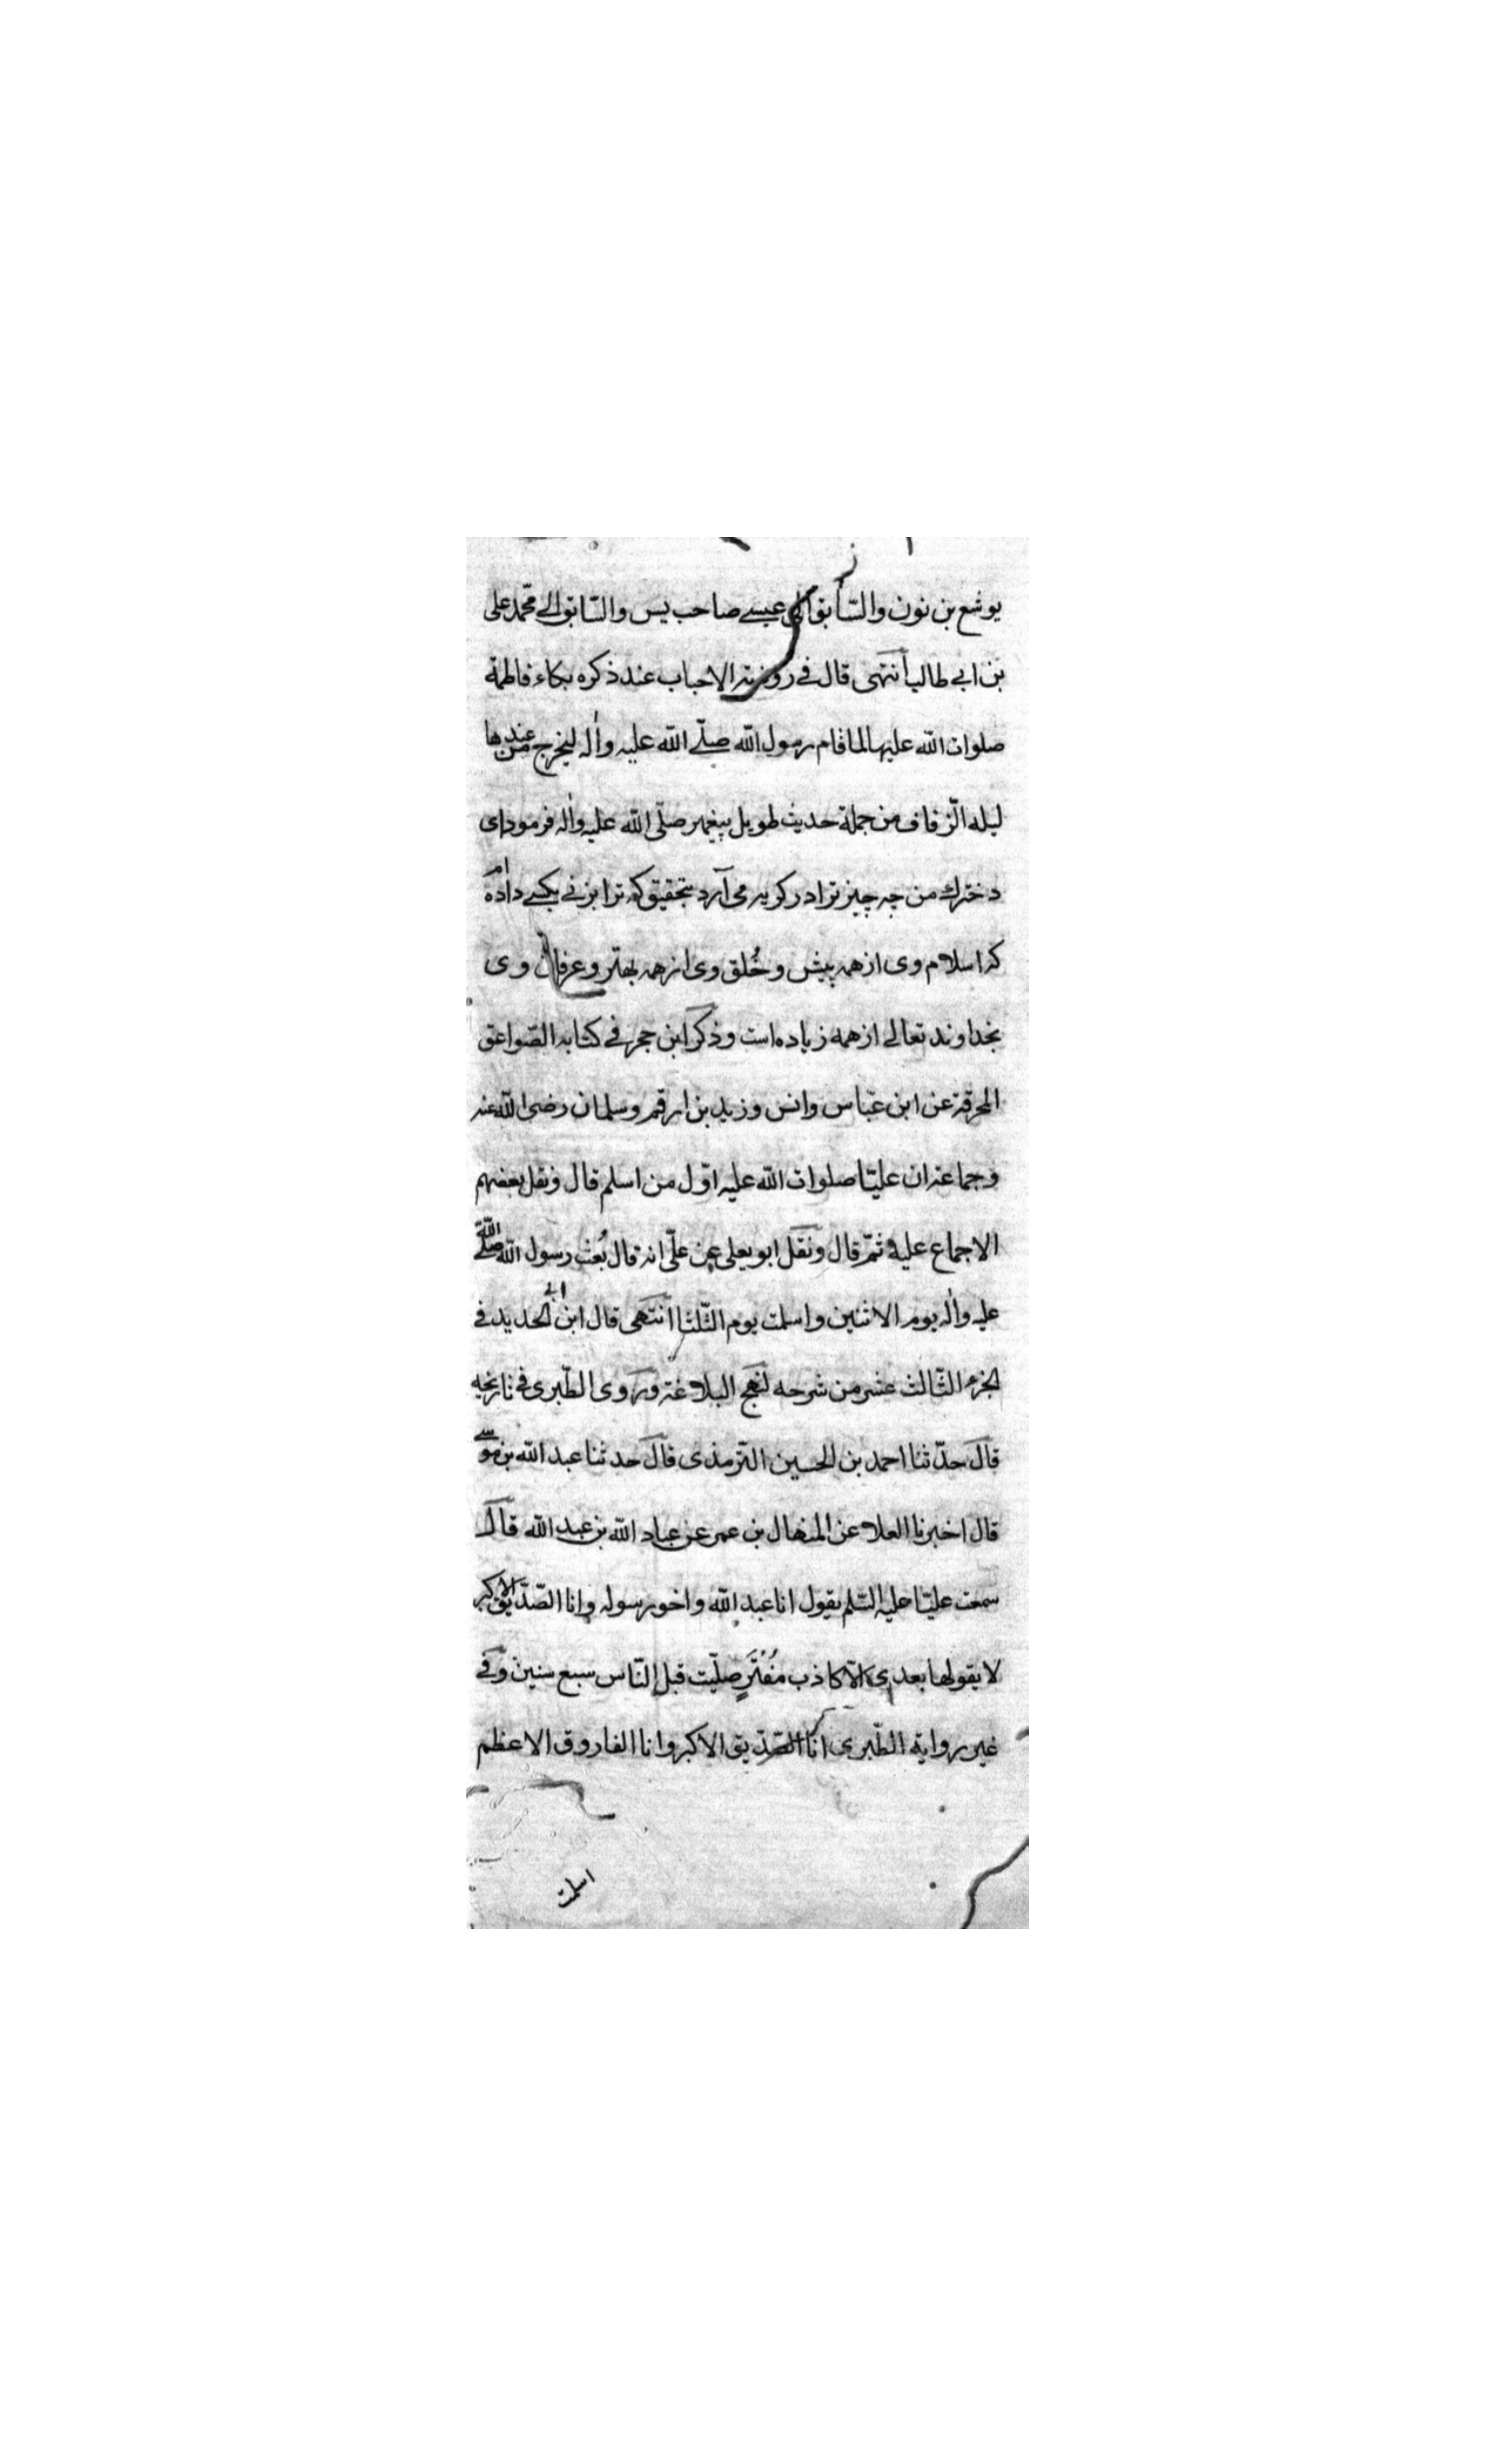 يوشع بن نون والسّابق الى عيسى صاحب يس والسّابق الى محمّد على
بن ابى طالب انتهى قال فى روضة الاحباب عند ذكره بكاء فاطمة
صلوات الله عليها لما قام رسول الله صلّى الله عليه واٰله ليخرج من عندها
ليله الزّفاف من جملة حديث طويل پيغمبر صلّى الله عليه واٰله فرمود اى
دخترك من چه چيز ترا در كريه مى آرد بتحقيق كه ترا بزنى بكسى داده ام
كه اسلام وى از همه پيش وخُلق وى از همه بهتر وعرفان وى
بخداوند تعالى از همه زياده است وذكر ابن حجر فى كتابه الصّواعق
المحرقة عن ابن عبّاس وانس وزيد بن ارقم وسلمان رضى الله عنه
وجماعة ان عليّا صلوات الله عليه اوّل من اسلم قال ونقل بعضهم
الاجماع عليه ثمّ قال ونقل ابو يعلى عن علّى انه قال بُعث رسول الله صلّى الله
عليه واٰله يوم الاثنين واسلمت يوم الثّلثا انتهى قال ابن ابى الحديد فى
الجزء الثّالث عشر من شرحه لنهج البلاغة وروى الطّبرى فى تاريخه
قال حدّثنا احمد بن الحسين التّرمذى قال حدثنا عبد الله بن موسى
قال اخبرنا العلا عن المنهال بن عمر عن عباد الله بن عبد الله قال
سمعت عليّا عليه السّلم يقول انا عبد الله واخو رسوله وانا الصّدّيق الاكبر
لا يقولها بعدى الّا كاذب مُفْتَرٍ صلّيت قبل النّاس سبع سنين وفى
غير رواية الطّبرى انا الصّدّيق الاكبر وانا الفاروق الاعظم
اسلمت